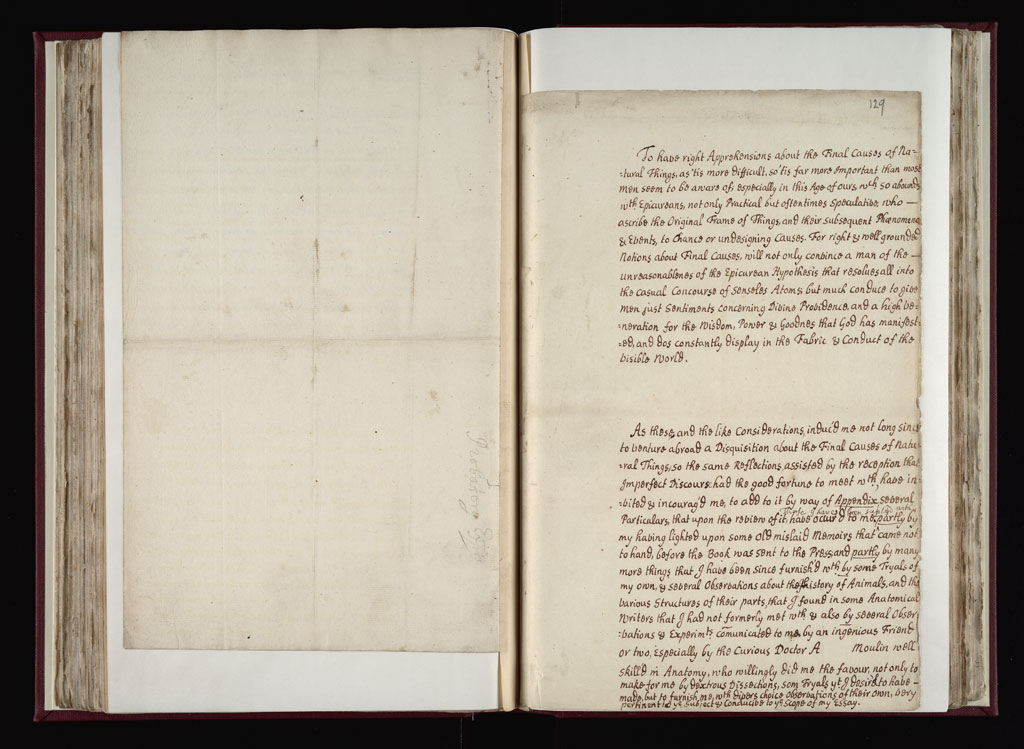 129
To have right Apprehensions about the Final Causes of Na=
=tural Things, as 'tis more difficult, so 'tis far more important than most
men seem to be aware of; especially in this Age of ours, wch so abounds
wth Epicureans, not only Practical but oftentimes Speculative, who —
ascribe the Original Frame of Things, and their subsequent Phænomena
& Events, to Chance or undesigning Causes. For right & well grounded
Notions about Final Causes, will not only convince a man of the —
unreasonablenes of the Epicurean Hypothesis that resolves all into
the casual Concourse of senseles Atoms; but much conduce to give
men just Sentiments concerning Divine Providence, and a high ve=
=neration for the Wisdom, Power & Goodnes that God has manifest=
=ed, and dos constantly display in the Fabric & Conduct of the
visible World.
As these, and the like Considerations, induc'd me not long since
to venture abroad a Disquisition about the Final Causes of Natu=
=ral Things; so the same Reflections, assisted by the reception that
Imperfect Discours had the good fortune to meet wth, have in=
=vited & incourag'd me, to add to it by way of Appendix several
Particulars, that upon the review of it have occur'd to me, partly by
those I have been supply'd with
my having lighted upon some Old mislaid Memoirs that came not
to hand, before the Book was sent to the Press; and partly by many
more things that I have been since furnish'd wth by some Tryals of
my own, & several Observations about the history of Animals, and the
various Structures of their parts, that I found in some Anatomical
Writers that I had not formerly met wth & also by several Obser=
=vations & Experimts comunicated to me, by an ingenious Friend
or two, especially by the Curious Doctor A Moulin well
skill'd in Anatomy, who willingly did me the favour, not only to
make for me by dextrous Dissections, som Tryals yt I desir'd to have —
made, but to furnish me, wth divers choice Observations of their own, very
pertinent to ye Subject & Conducive to ye Scope of my Essay.